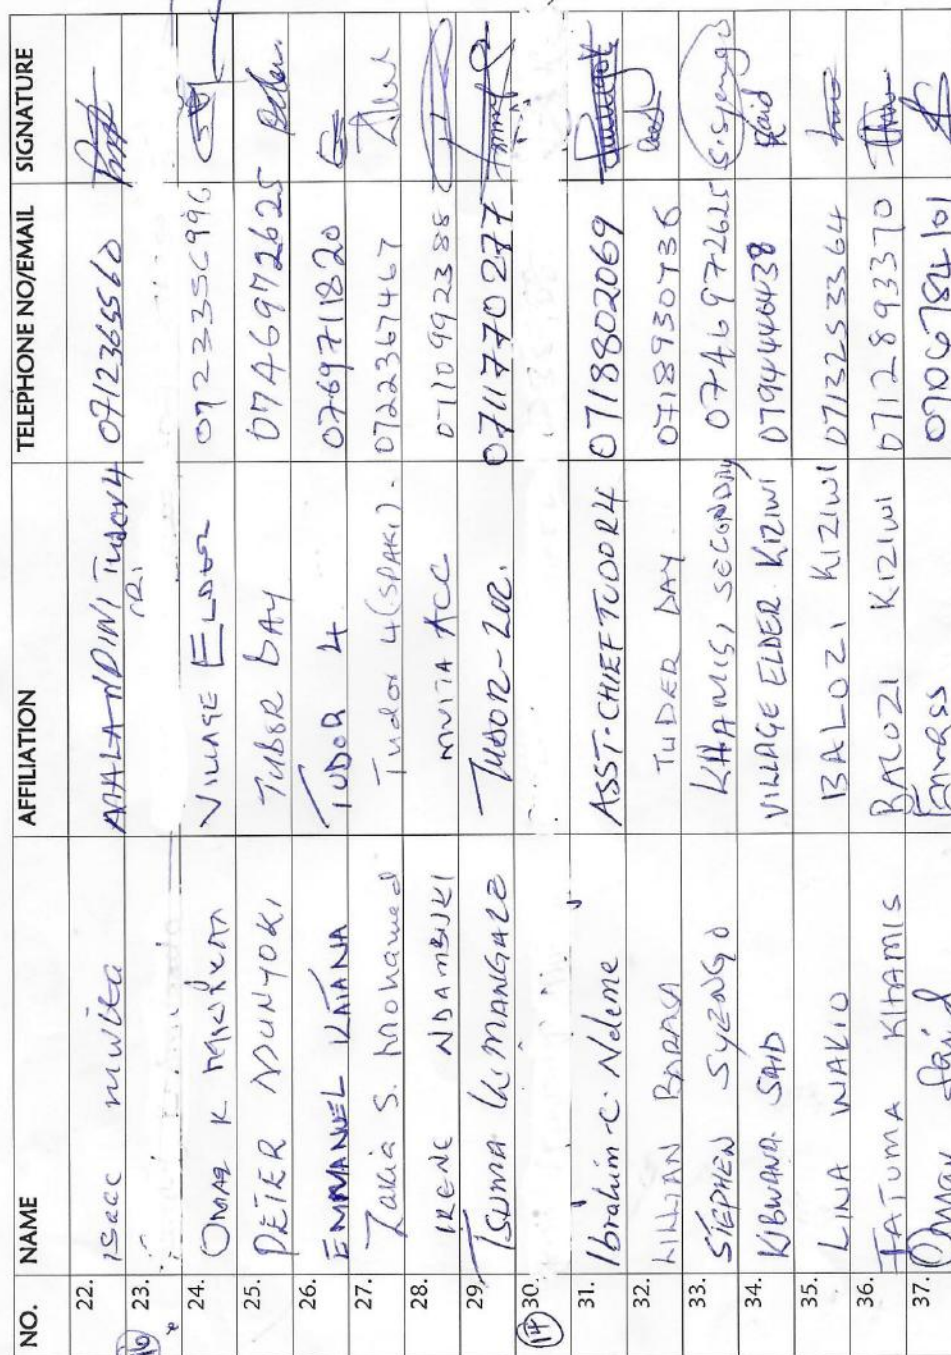 NO. NAME AFFILIATION TELEPHONE NO/EMAIL SIGNATURE
22. Isaac Mulwa TUDOR 4 0712365560
23.
24. OMAR K. VILLAGE ELDER
25. PETER NDUNYOKI TUDER DAY 0746972625
26. EMMANUEL KATANA TUDOR 4 0769711820
27. Zakia S. Mohamed Tudor 4 (SPAKI). 0722367467
28. IRENE NDAMBUKI MVITA ACC 0710992388
29. TSUMA KIMANGALE TUDOR-LOC. 0711770277
14 30.
31. Ibrahim C. Ndeme ASST-CHIEF TUDOR 4 0718802069
32. LILLIAN BARASA TUDER DAY 0718930736
33. STEPHEN SYENGO KHAMIS, SECONDARY 0746972625 S.Syengo
34. KIBWANA SAID VILLAGE ELDER KIZIWI 0794446438 Said
35. LINA WAKIO BALOZI KIZIWI 0713253364
36. FATUMA KHAMIS BALOZI KIZIWI 0712893370
37. Omar Said 0710678410